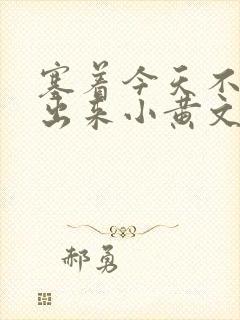 塞着今天不
出来小黄文
郝勇